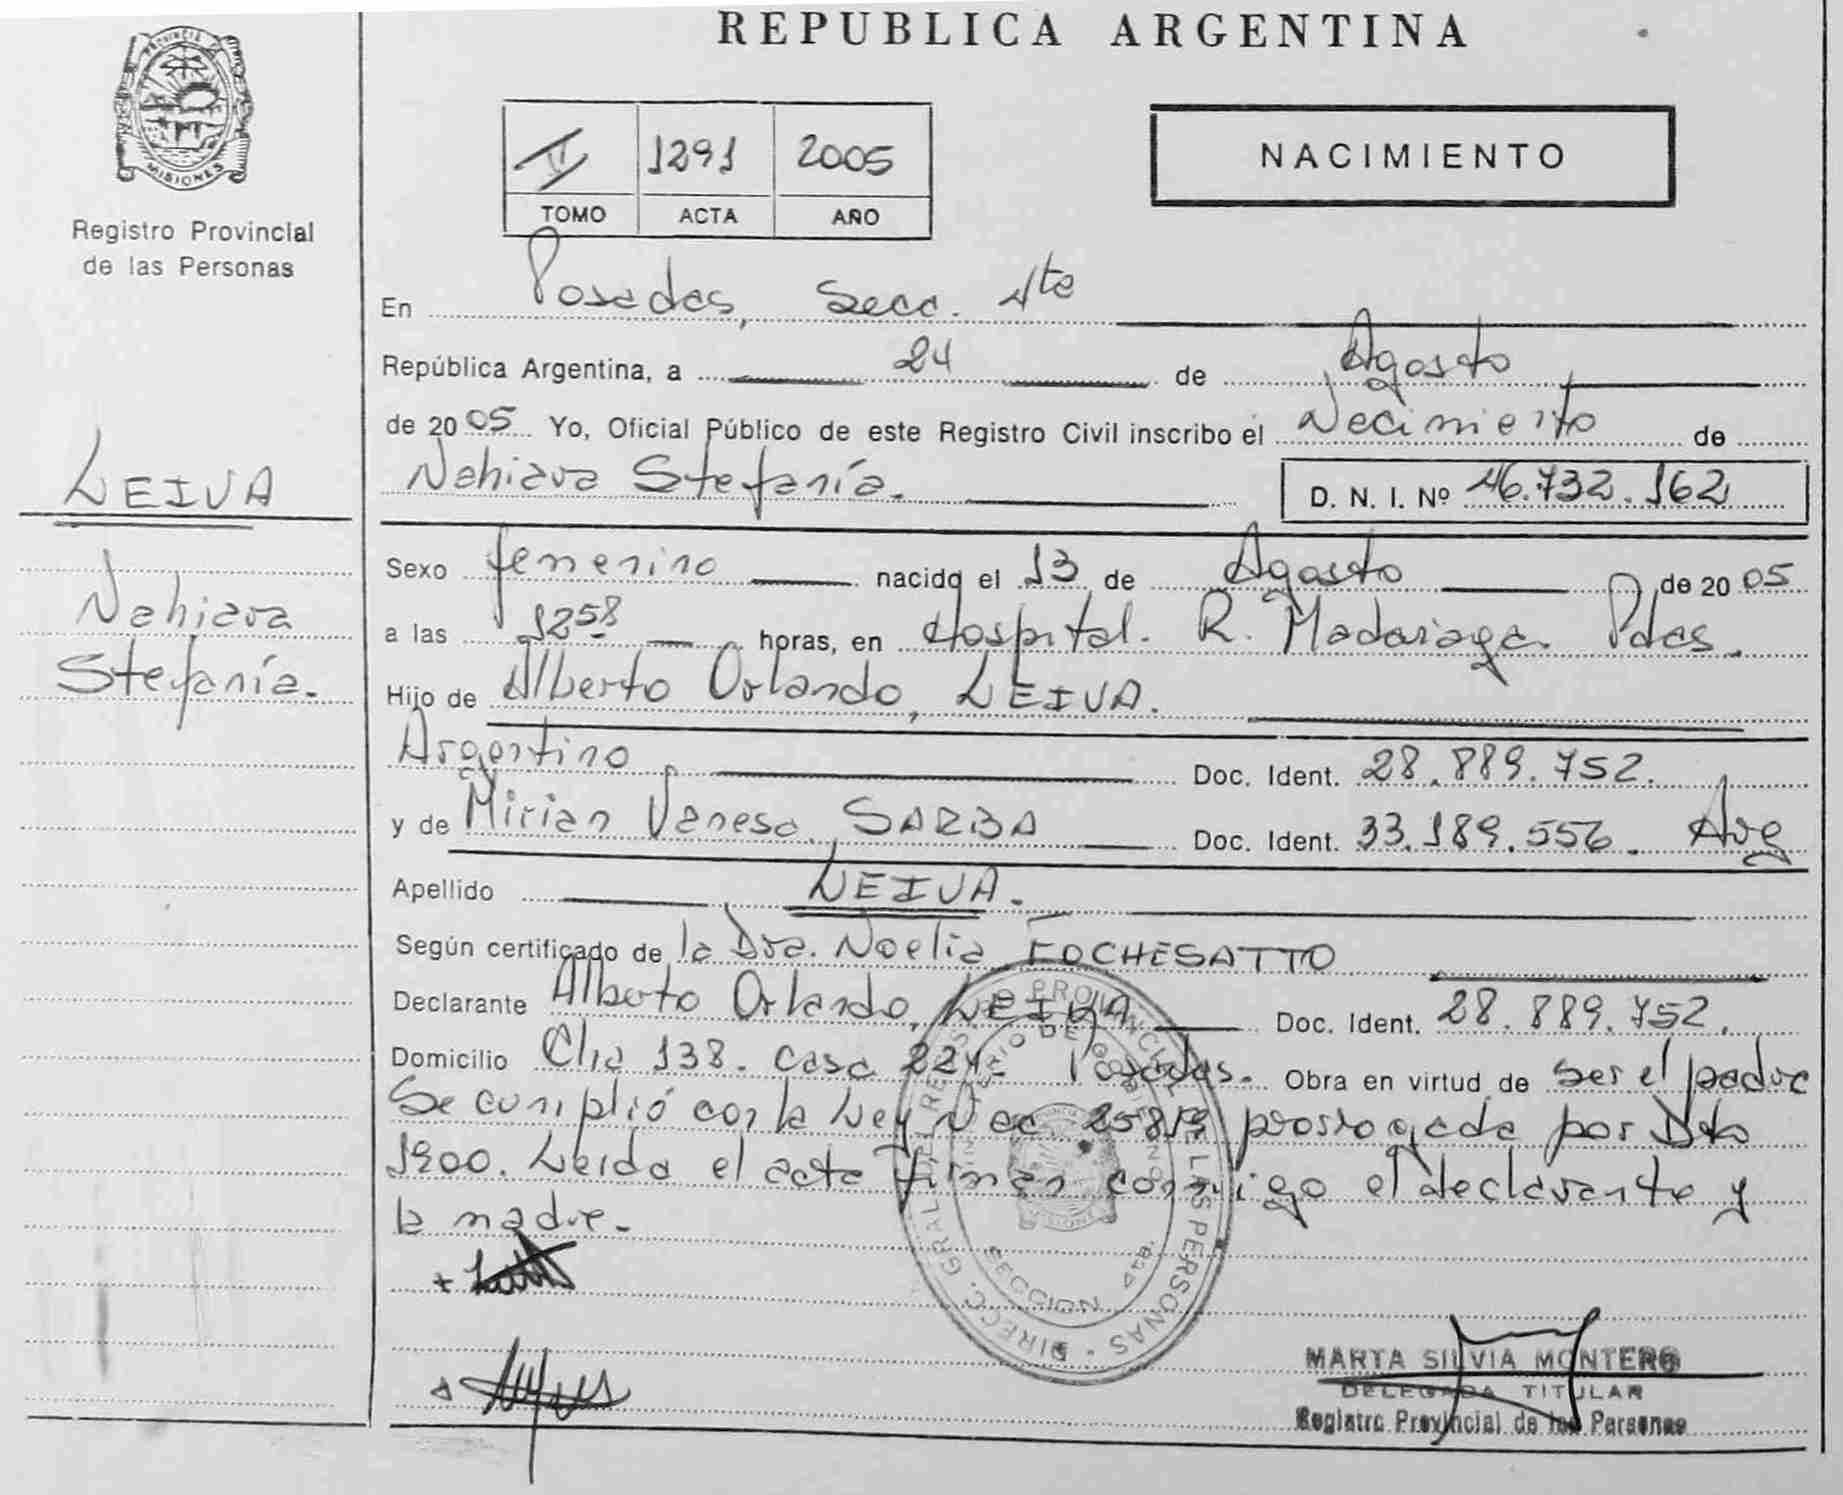 REPUBLICA ARGENTINA
PROVINCIA DE
MISIONES
Registro Provincial
de las Personas
II 1291 2005
TOMO ACTA AÑO
NACIMIENTO
En Posadas, Secc. 4ta
República Argentina, a 24 de Agosto
de 2005 Yo, Oficial Público de este Registro Civil inscribo el Nacimiento de
Nahiara Stefanía. D. N. I. Nº 46.732.162
LEIVA
Nahiara
Stefanía.
Sexo femenino nacido el 13 de Agosto de 2005
a las 12 58 horas, en Hospital. R. Madariaga. Pdas.
Hijo de Alberto Orlando, LEIVA.
Argentino Doc. Ident. 28.889.752.
y de Mirian Vanesa. SARBA Doc. Ident. 33.189.556. Arg
Apellido LEIVA.
Según certificado de la Dra. Noelia FOCHESATTO
Declarante Alberto Orlando, LEIVA Doc. Ident. 28.889.752.
Domicilio Cha 138. casa 224. Posadas. Obra en virtud de ser el padre
Se cumplió con la Ley Nac 25819 prorrogada por Dto
1900. Leida el acta firman conmigo el declarante y
la madre.
DIRECC. GRAL. DEL REGISTRO PROVINCIAL DE LAS PERSONAS
MINISTERIO DE GOBIERNO
SECCION 4ta.
MARTA SILVIA MONTERO
DELEGADA TITULAR
Registro Provincial de las Personas